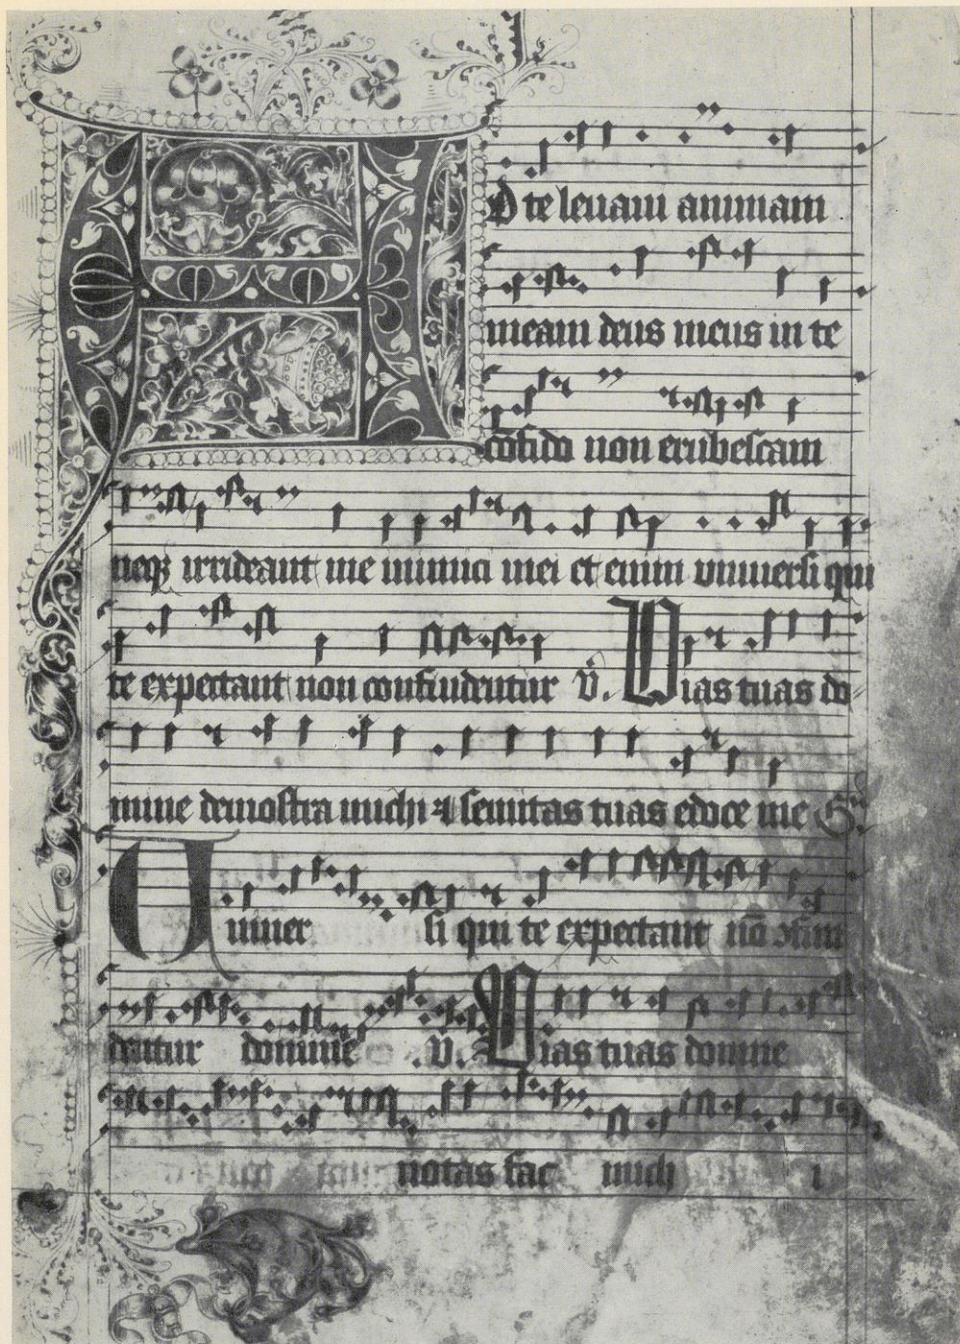 AD te leuaui animam
meam deus meus in te
cōfido non erubescam
neqꝫ irrideant me inimici mei et enim vniuersi qui
te expectant non confundentur ℣. Vias tuas do-
mine demostra michi ⁊ semitas tuas edoce me
Uniuer si qui te expectant nō ꝯfun
dentur domine .℣. Vias tuas domine
notas fac mich i